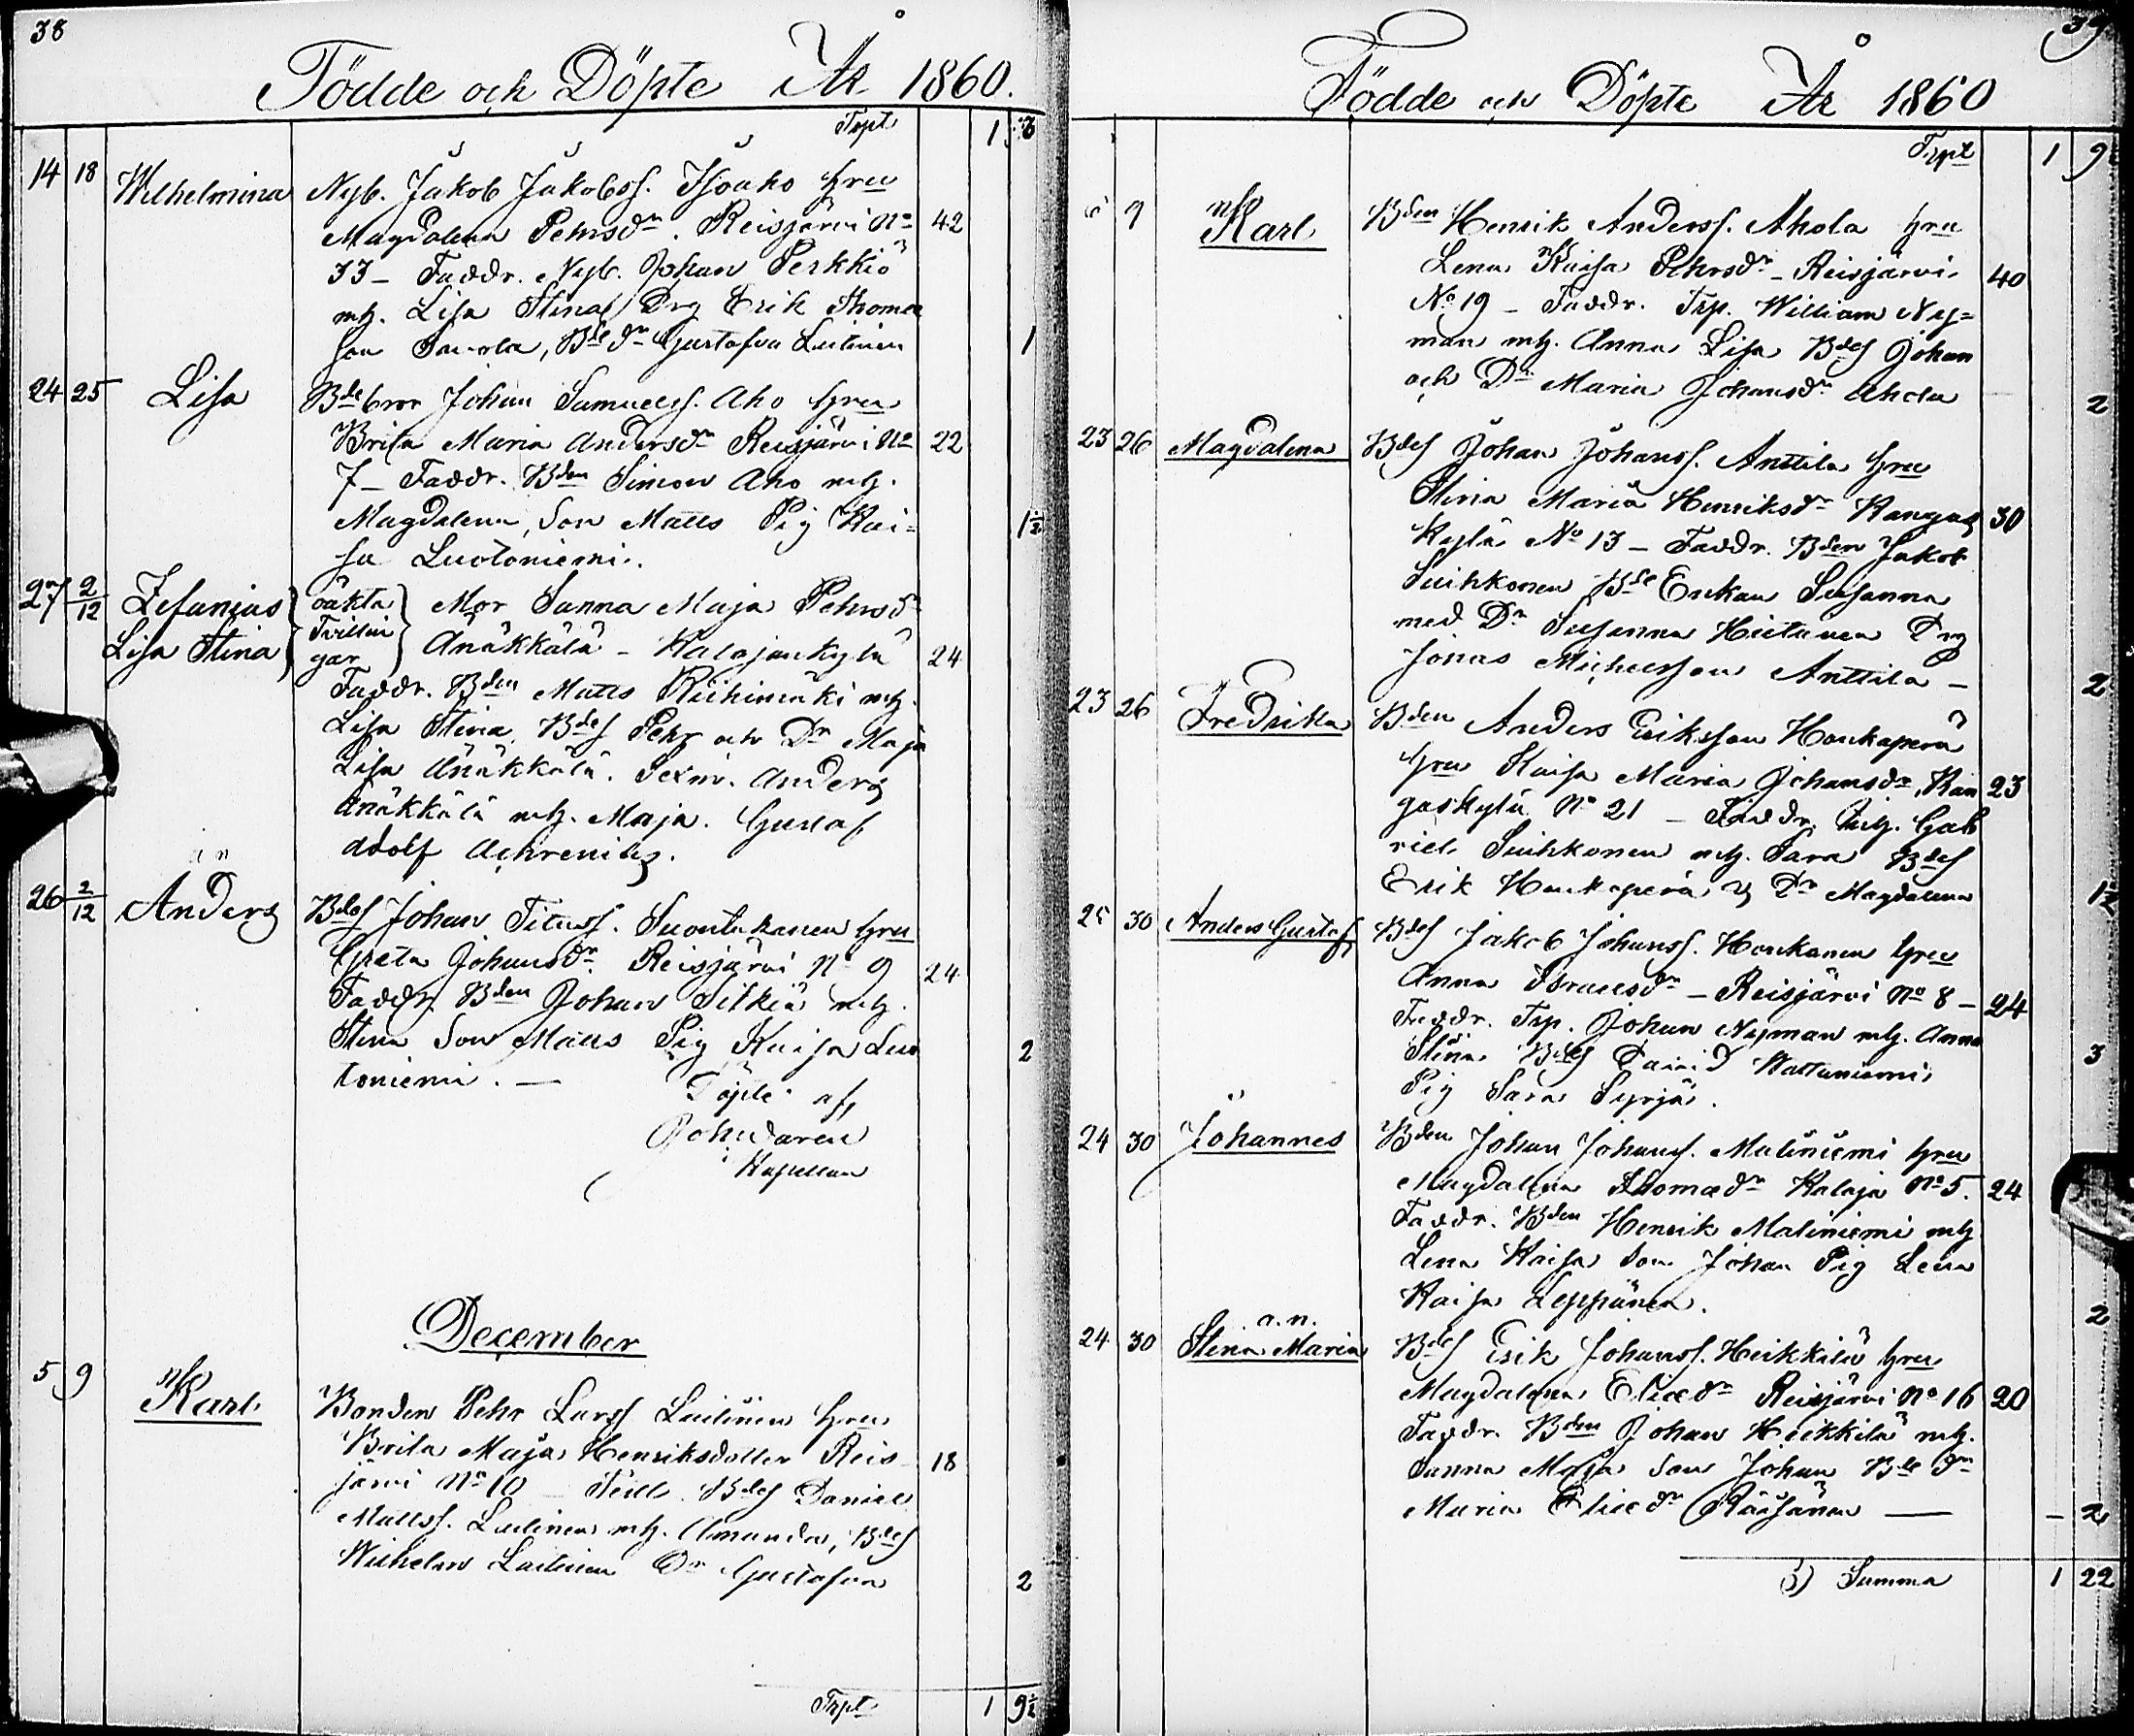 38
Födde och Döpte År 1860.
Trpt 1
14 18 Wilhelmina Nyb. Jakob Jakobss. Isoaho hru
Magdalena Pehrsdr. Reisjärvi No 42
33 – Faddr. Nyb. Johan Perkkiö
mh. Lisa Stina Drg Erik Thomæ
son , Bde dr Gustafva Leitinen 1
24 25 Lisa Bdebror Johan Samuelss. Aho hru
Brita Maria Andersdr Reisjärvi No 22
7 – Faddr. Bden Simon Aho mh.
Magdalena, Son Matts Pig Kai= 1½
sa Luotoniemi.
27 2/12 Zefanias oäkta Mor Sanna Maja Pehrsdr
Lisa Stina Tvillin gar Änäkkälä – Kalajankylä 24
Faddr. Bden Matts Riihimäki mh.
Lisa Stina, Bdes Pehr och Dr Maja
Lisa Änäkkälä. Sexm. Anders
Änäkkälä mh. Maja. Gustaf
Adolf Achrenius.
a n
26 2/12 Anders Bdes Johan Tituss. Suontakanen hru
Greta Johansdr. Reisjärvi No 9 24
Faddr. Bden Johan Pitkiä mh.
Stina Son Matts Pig Kaisa Luo 2
toniemi. —
Döpte af
Kapellan
December
5 9 Karl Bonden Pehr Larss Leitinen hru
Brita Maja Henriksdotter Reis- 18
järvi No 10 – Test. Bdes Daniel
Mattss. Leitinen mh. Amanda, Bdes
Wilhelm Leitinen Dr Gustafva 2
Trpt 1 9½
39
Födde och Döpte År 1860
Trpt 1 9
6 9 Karl Bden Henrik Anderss. Ahola hru
Lena Kaisa Pehrsdr – Reisjärvi 40
No 19 – Faddr. Trp. William Ny=
man mh. Anna Lisa Bdes Johan
och Dr Maria Johansdr Ahola 2
23 26 Magdalena Bdes Johan Johanss. Anttila hru
Stina Maria Henriksdr Kangas 30
kylä No 13 – Faddr. Bden Jakob
Suihkonen Bde Enkan Susanna
med Dr Susanna Hietanen Drg
Jonas Michelsson Anttila – 2
23 26 Fredrika Bden Anders Eriksson Honkaperä
hru Kaisa Maria Johansdr, Kan 23
gaskylä No 21 – Faddr. Inh. Gab
riel Suihkonen mh. Sara Bdes
Erik Honkaperä & Dr Magdalena 1½
25 30 Anders Gustaf Bdes Jakob Johanss. Honkanen hru
Anna Israelsdr – Reisjärvi No 8 – 24
Faddr. Trp. Johan Nyman mh. Anna
Stina Bdes David Wattuniemi 3
Pig Sara Syrjä.
24 30 Johannes Bden Johan Johanss. Maliniemi hru
Magdalena Thomædr Kalaja No 5. 24
Faddr. Bden Henrik Maliniemi mh
Lena Kaisa Son Johan Pig Lena
Kaisa Leppänen. 2
a.n.
24 30 Stina Maria Bdes Erik Johanss. Heikkilä hru
Magdalena Eliædr Reisjärvi No 16 20
Faddr. Bden Johan Heikkilä mh.
Sanna Maja Son Johan Bde dr
Maria Eliædr Räisänen — – 2
Summa 1 22